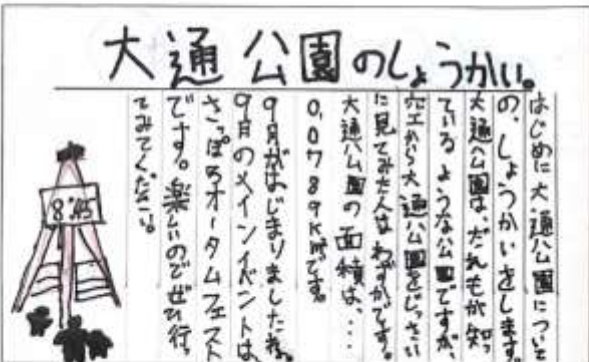 大通公園のしょうかい。
はじめに大通公園について
の、しょうかいをします。
大通公園は、だれもが知っ
ているような公園ですが、
空から大通公園をじっさい
に見てみた人はわずかです。
大通公園の面積は、...
0,0789km²です。
9月がはじまりましたね。
9月のメインイベントは、
さっぽろオータムフェスト
です。楽しいのでぜひ行っ
てみてください。
8:45